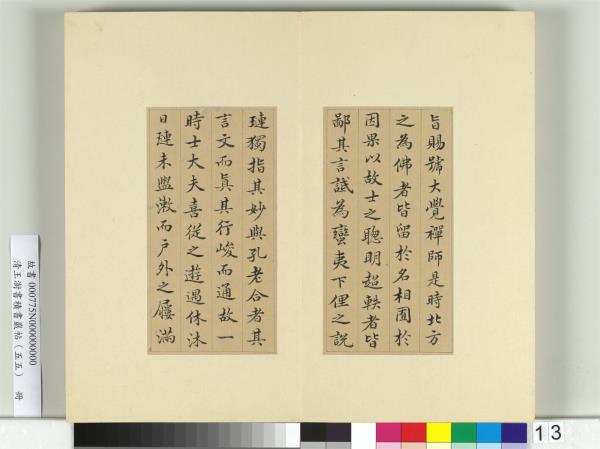 旨賜號大覺禪師是時北方
之為佛者皆留於名相囿於
因果以故士之聰明超軼者皆
鄙其言詆為蠻夷下俚之說
璉獨指其妙與孔老合者其
言文而真其行峻而通故一
時士大夫喜從之遊遇休沐
日璉未盥漱而戶外之屨滿
故書 000775N000000000
清王澍書積書巖帖（五五） 冊
13